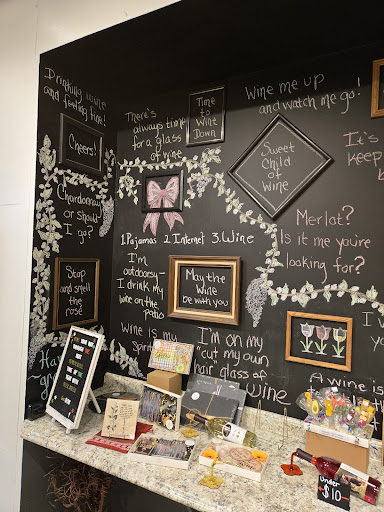 Drinking wine
and feeling fine!
Cheers!
There's
always time
for a glass
of wine
Time
to
Wine
Down
Wine me up
and watch me go!
Sweet
Child
of
Wine
It's
keep
Chardonnay
or should
I go?
1. Pajamas 2. Internet 3. Wine
Merlot?
Is it me you're
looking for?
Stop
and smell
the
rosé
I'm
outdoorsy-
I drink my
wine on the
patio
May the
Wine
be with you
wine is my
I'm on my
"cut my own
hair" glass of
wine
I
A wine
under
$10